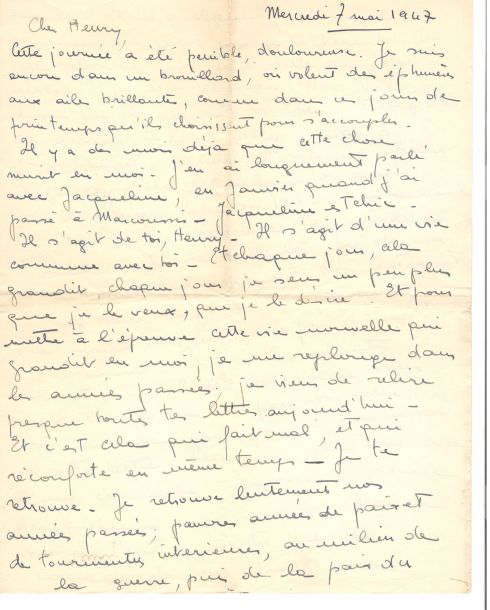 Mercredi 7 mai 1947
Cher Henry,
Cette journée a été penible, douloureuse. Je suis
encore dans un brouillard, où volent des éphémères
aux ailes brillantes, comme dans ces jours de
printemps qu'ils choisissent pour s'accoupler.
Il y a des mois déjà que cette chose
murit en moi. J'en ai longuement parlé
avec Jacqueline, en Janvier quand j'ai
passé à Marcoussis - Jacqueline et
Il s'agit de toi, Henry - Il s'agit d'une vie
commune avec toi - Et chaque jour, cela
grandit chaque jour je sens un peu plus
que je le veux, que je le désire. Et pour
mettre à l'épreuve cette vie nouvelle qui
grandit en moi, je me replonge dans
les années passées, je viens de relire
presque toutes tes lettres aujourd'hui -
Et c'est cela qui fait mal, et qui
réconforte en même temps - Je te
retrouve - Je retrouve lentement nos
années passées, pauvres années de paix et
de tourmentes intérieures, au milieu de
la guerre, puis de la paix du